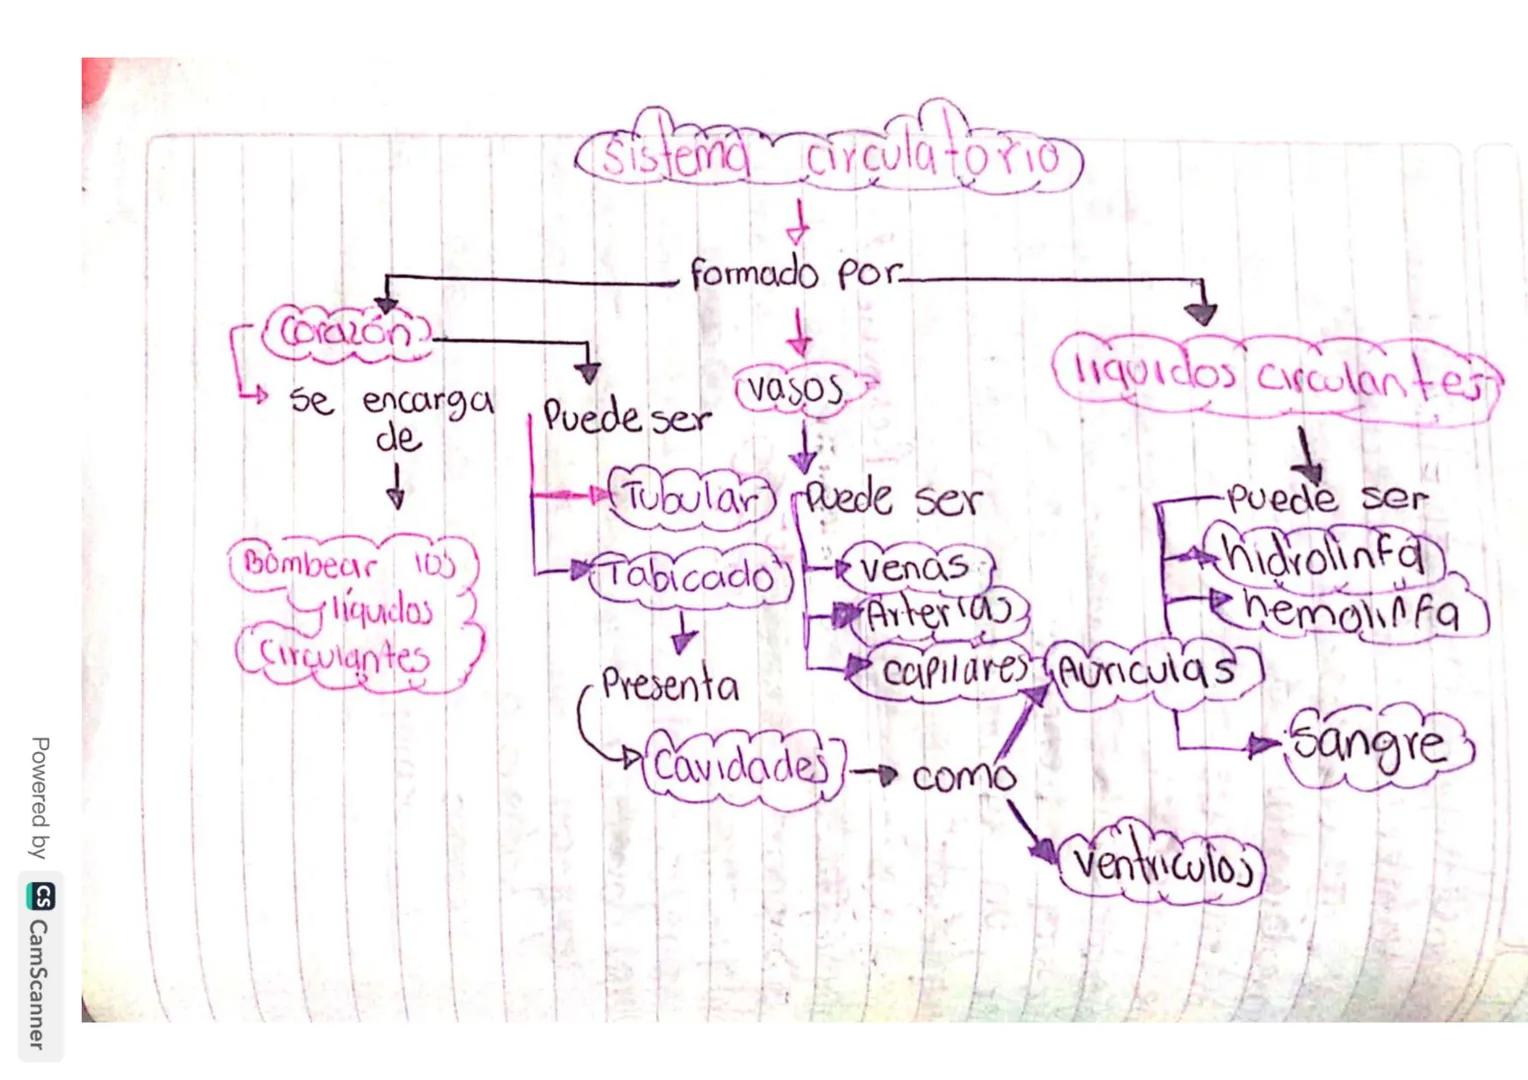 sistema circulatorio
formado por
Corazón
se encarga
de
Bombear los
líquidos
Circulantes
Puede ser
Tubular
Tabicado
Presenta
Cavidades
como
Auriculas
ventriculos
vasos
Puede ser
venas
Arterias
capilares
liquidos circulantes
puede ser
hidrolinfa
hemolinfa
Sangre
Powered by CS CamScanner